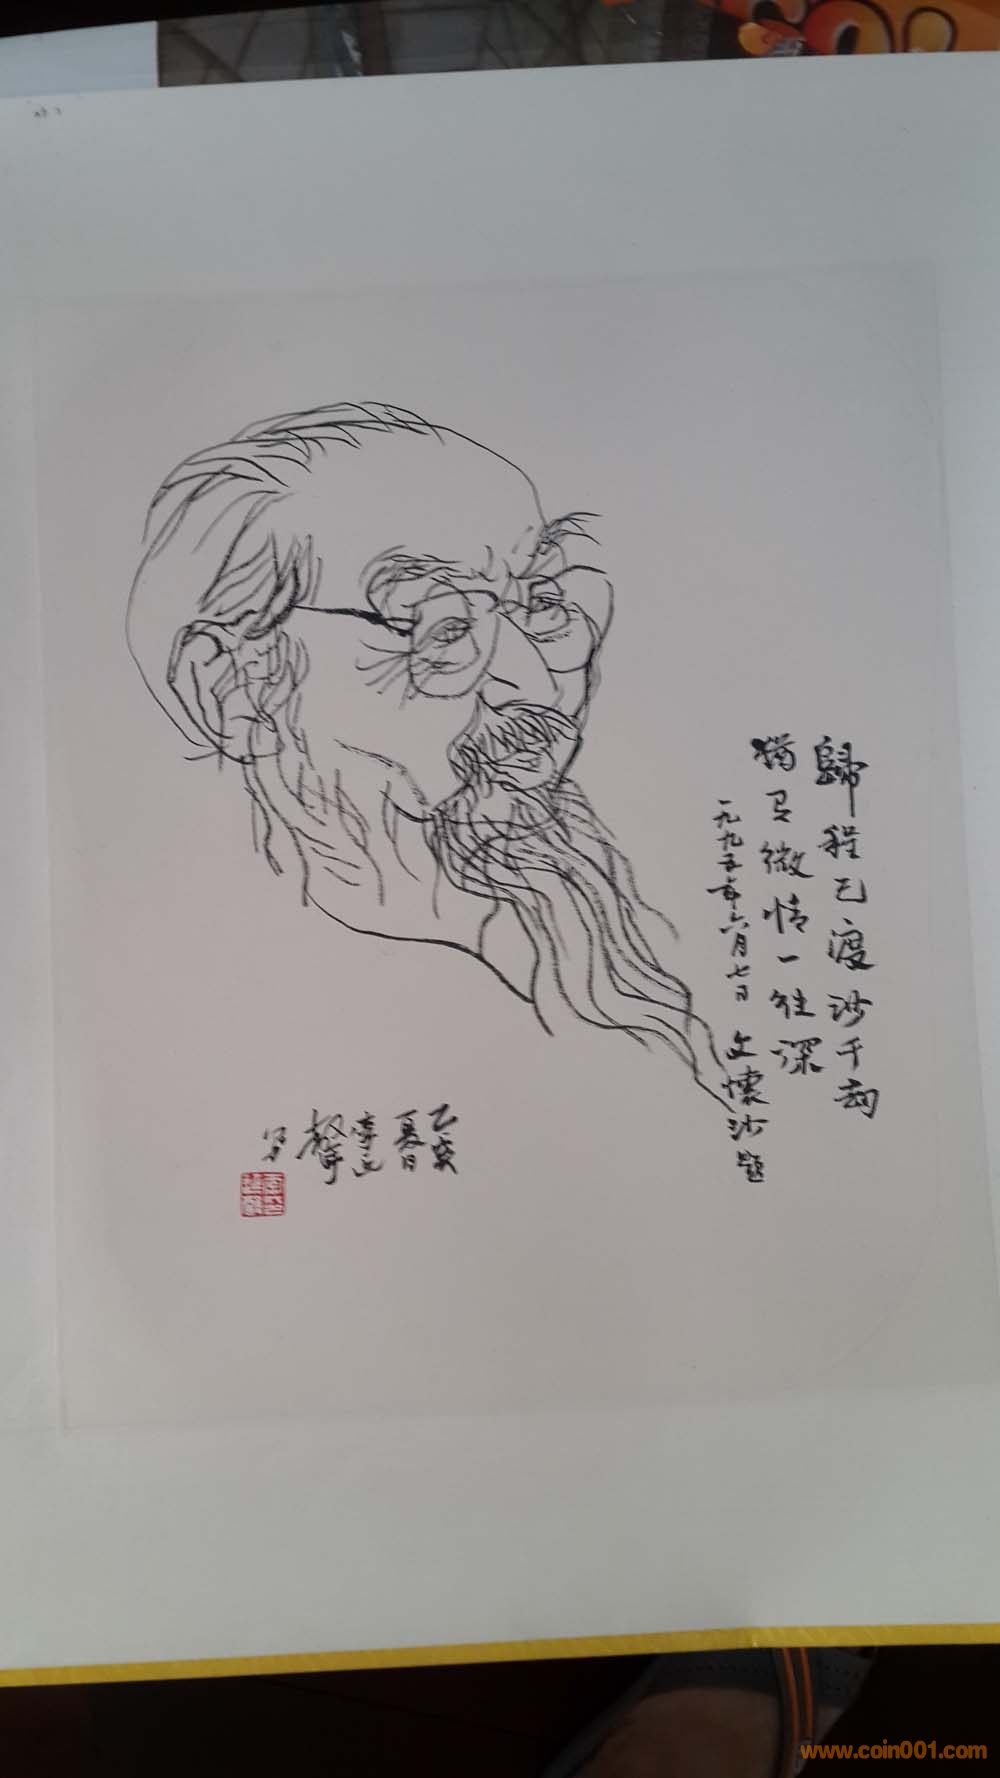 歸程已渡沙千劫
獨有微情一往深
一九九五年六月七日 文懷沙題
乙亥
夏日
聲
寫
www.coin001.com